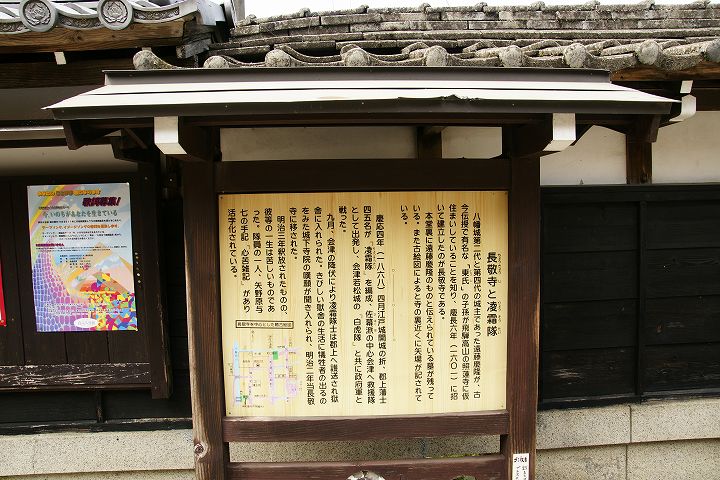 長敬寺と凌霜隊
八幡城第二代と第四代の城主であった遠藤慶隆が、古
今伝授で有名な、「東氏」の子孫が飛騨高山の照蓮寺に仮
住まいしていることを知り、慶長六年（一六〇一）に招
いて建立したのが長敬寺である。
本堂裏に遠藤慶隆のものと伝えられている墓が残って
いる。また古絵図によると寺の裏近くに矢場が記されて
いる。
慶応四年（一八六八）四月江戸城開城の折、郡上藩士
四五名が、「凌霜隊」を編成、佐幕派の中心会津へ救援隊
として出発し、会津若松城の「白虎隊」と共に政府軍と
戦った。
九月、会津の降伏により凌霜隊士は郡上へ護送され獄
舎に入れられた。きびしい獄舎の生活に犠牲者の出るの
をみた城下寺院の嘆願が聞き入れられ、明治二年当長敬
寺に移された。
明治三年釈放されたものの、
彼等の一生は苦しいものであ
った。隊員の一人、矢野原与
七の手記、「心苦雑記」があり
活字化されている。
歌詞募集!
今、いのちがあなたを生きている